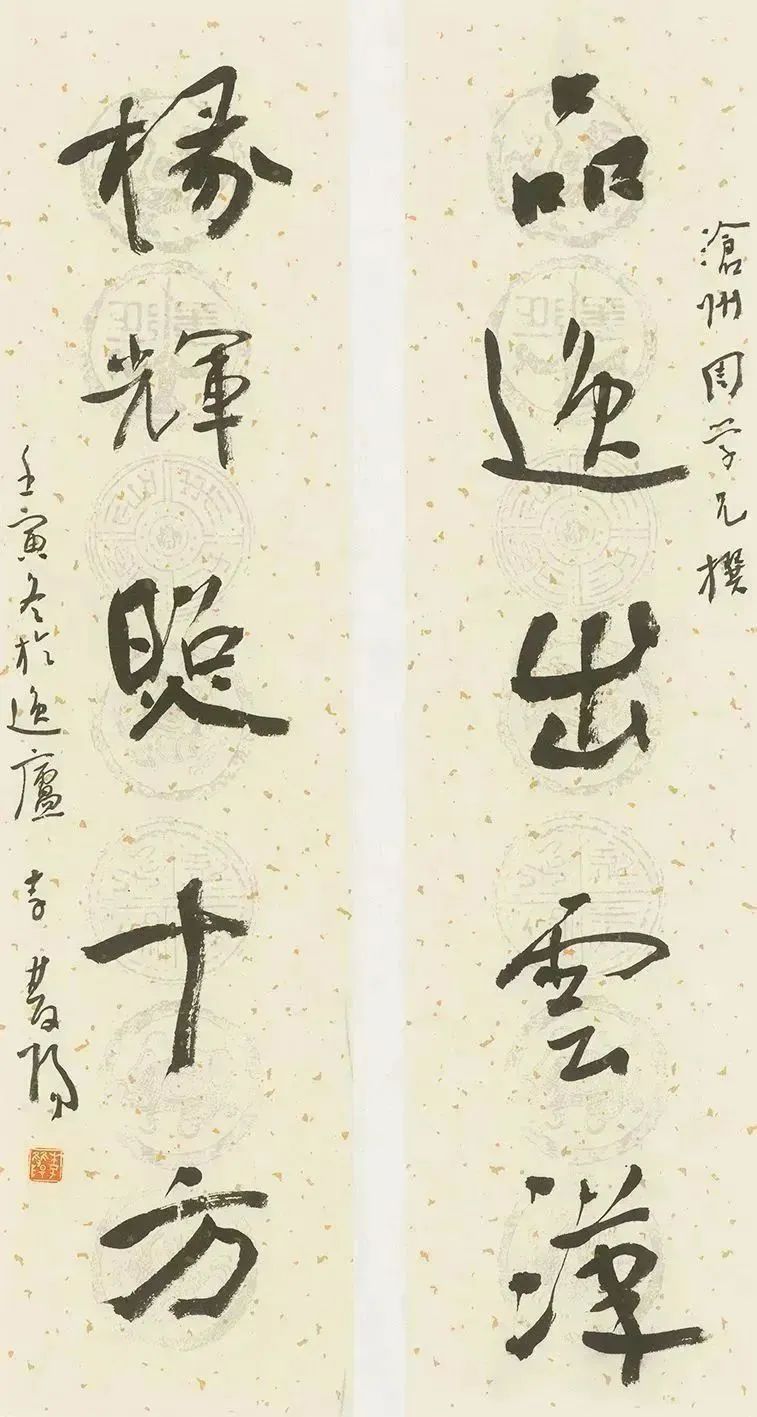 滄州周学兄撰
品逸出雲漢
椽輝照十方
壬寅冬於逸廬 李雙陽